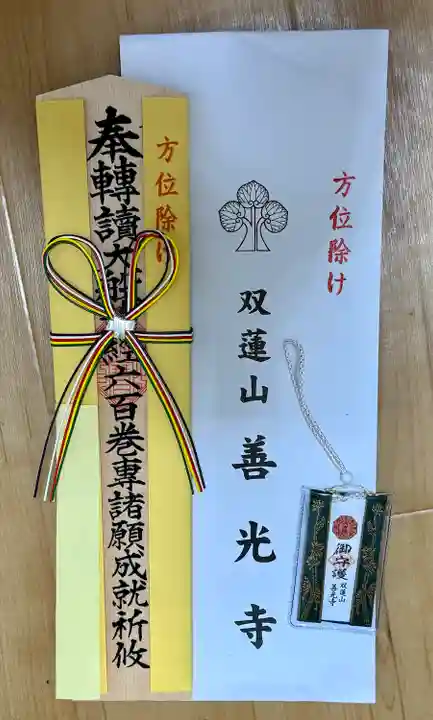 方位除け
奉轉讀大般若經六百巻專諸願成就祈攸
方位除け
双蓮山 善光寺
御守護
双蓮山
善光寺